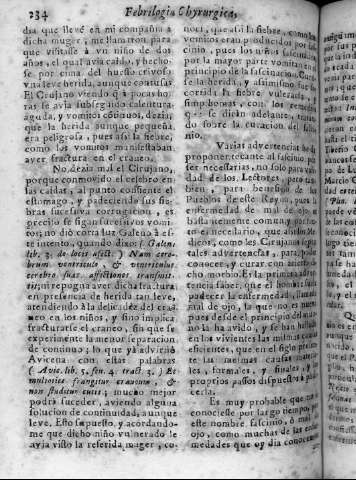 234 Febrilogia Chyrurgica,
dia que llevè en mi compañia a
dicha muger, me llamaron para
que visitasse à un niño de dos
años, el qual avia caìdo, y hecho-
se por cima del huesso crivoso
una leve herida, aunque contusa.
El Cirujano viendo q à pocas ho-
ras se avia subseguido calentura
aguda, y vomitos continuos, dezia,
que la herida aunque pequeña,
era peligrosa, pues assi la fiebre,
como los vomitos manifestaban
aver fractura en el craneo.
No dezia mal el Cirujano,
porque conmovido el cerebro en
las caìdas, al punto consiente el
estomago, y padeciendo sus fie-
bras sucessiva corrugacion, es
preciso se sigan furiosos vomi-
tos; no diò corta luz Galeno à es-
te intento, quando dixo: ( Galen.
lib. 3. de locis affect. ) Nam cere-
brum ventriculo, & ventriculus
cerebro suas affictiones transmit-
tit; ni repugna aver dicha fractura
en presencia de herida tan leve,
atendiendo à la delicidez del cra-
neo en los niños, y sino implica,
fracturarse el craneo, sin que se
experimente la menor separacion
de continuo; lo que yà advirtiò
Avicena con estas palabras
( Avic. lib. 5. fen. 4. tract. 3. ) Et
multoties frangitur craneum, &
non finditur cutis; mucho mejor
podrà suceder, aviendo alguna
solucion de continuidad, aunque
leve. Esto supuesto, y acordando-
me que dicho niño vulnerado le
avia visto la referida muger, co-
nocì, que assi la fiebre, como los
vomitos eran producidos por fas-
cinio, pues los niños fascinados
por la mayor parte vomitan en el
principio de la fascinacion. Curè
de la herida, y assimismo fue so-
corrida la fiebre vulneraria, y
simphomas, con los remedios
que se diràn adelante, tratan-
do sobre la curacion del fasci-
nio.
Varias advertencias he de
proponer tocante al fascinio, por
ser necessarias, no solo para varie-
dad de los Lectores, pero tam-
bien, para beneficio de los
Pueblos de este Reyno, pues la
enfermedad de mal de ojo es
bastantemente comun, y por tan-
to es necessario, que assi los Me-
dicos, como los Cirujanos sepan
tales advertencias, para poder
conocer, y curar con acierto di-
cho morbo. Es la primera adver-
tencia saber, que el hombre pudo
padecer la enfermedad, llamada
mal de ojo, la que no es nueva,
pues desde el principio del mundo
no la ha avido, y se han hallado
en los vivientes las mismas causas
eficientes, que en el siglo presen-
te las mismas causas materia-
les, formales, y finales, y los
proprios passos dispuestos à pade-
cerla.
Es muy probable que no
conociesse por largo tiempo, por
este nombre, fascinio, ò mal de
ojo, como muchas de las enfer-
medades que oy dia conocemos